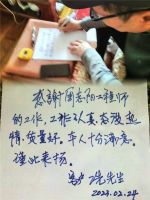 感謝周志阳工程师
的工作，工作认真态度热
情，质量好。本人十分满意。
谨此表扬。
先生
2023.02.24